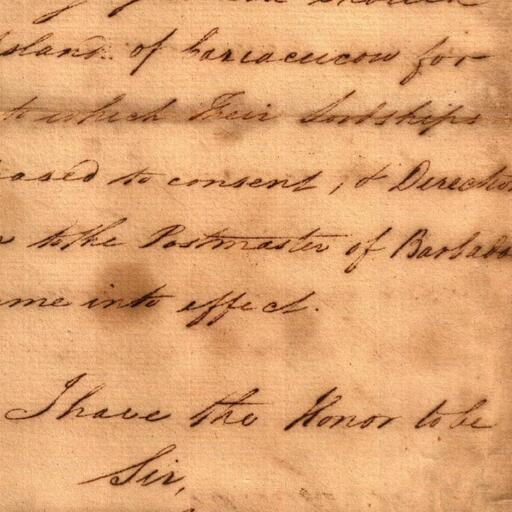 Island of Cariacucou for
to which Their Lordships
eased to consent, & Directio
to the Postmaster of Barbado
me into effect.
I have the Honor to be
Sir,